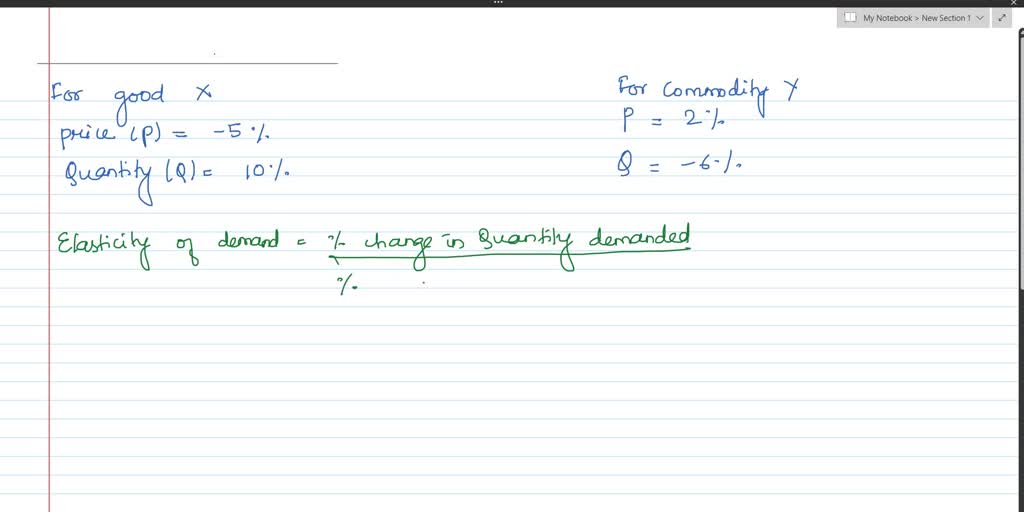 My Notebook > New Section 1
For good X
price (P) = -5%
Quantity (Q) = 10%.
For Commodity Y
P = 2%
Q = -6%.
Elasticity of demand = % change in Quantity demanded
%